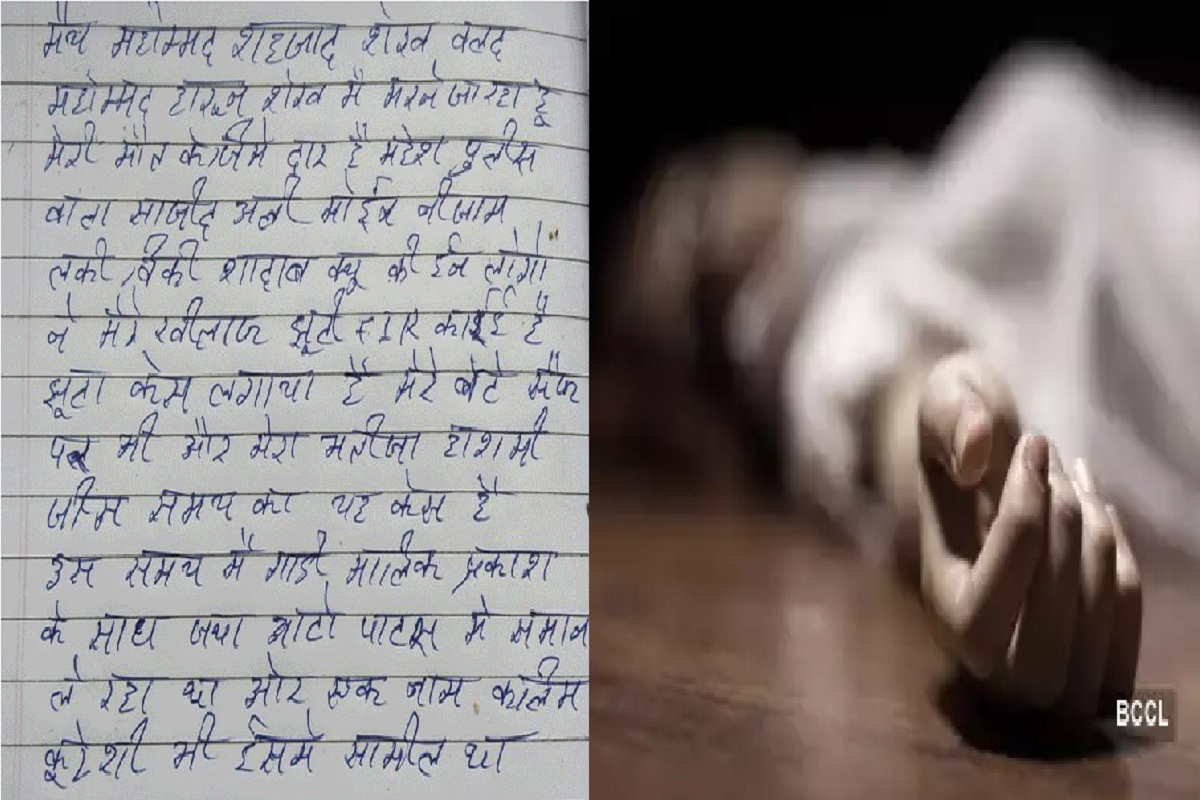 मैय महोम्मद शहजाद शेख वलद
महोम्मद हारून शेख मै मरने जा रहा हू
मेरी मौत के जीमे दार है महेश पुलीस
वाला साजीद अली मोईन नीजाम
लकी विकी शादाब क्यू की ईन लोगो
ने मेरे खीलाफ झूटी FIR काई है
झूटा केस लगाया है मेरे बेटे सैफ
पर भी और मेरा भतीजा हाशमी
जीस समय का यह केस है
इस समय मै गाडी मालिक प्रकाश
के साथ जया ओटो पाटस मे समान
ले रहा था और एक नाम कालीम
कूरेशी भी ईसमे सामील था
BCCL